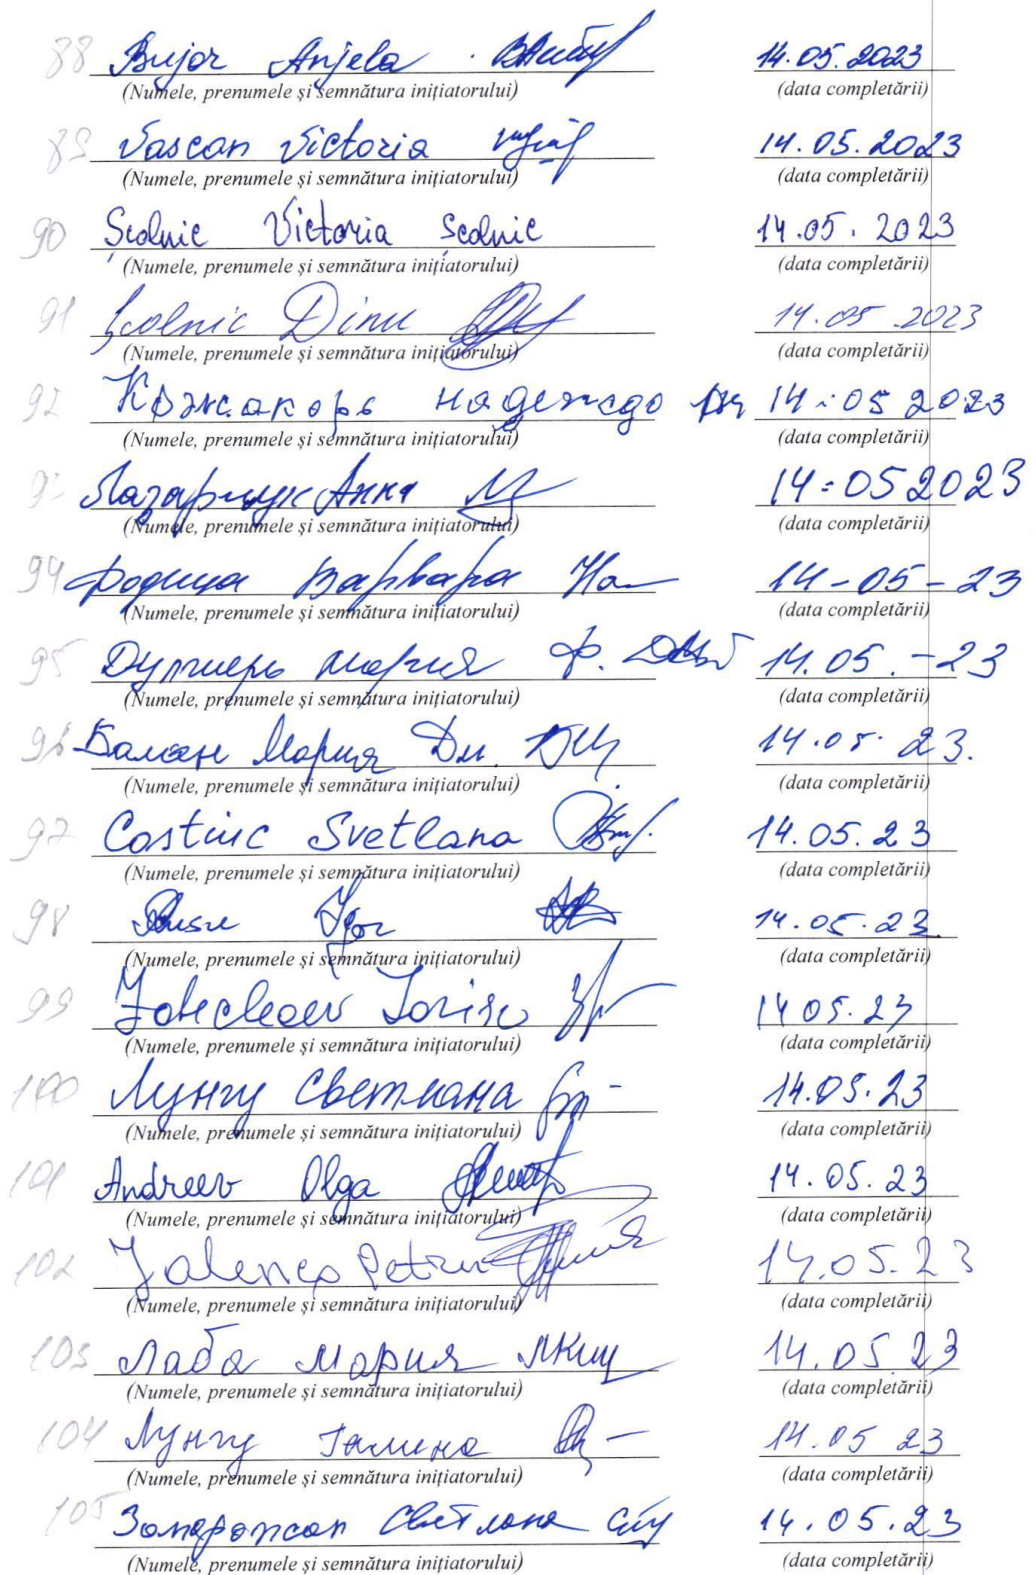 88 Bujor Anjela 14.05.2023
(Numele, prenumele și semnătura inițiatorului) (data completării)
89 Vascan Victoria 14.05.2023
(Numele, prenumele și semnătura inițiatorului) (data completării)
90 Școlnic Victoria Școlnic 14.05.2023
(Numele, prenumele și semnătura inițiatorului) (data completării)
91 Școlnic Dinu 14.05.2023
(Numele, prenumele și semnătura inițiatorului) (data completării)
92 14.05 2023
(Numele, prenumele și semnătura inițiatorului) (data completării)
93 Лазарчук Анна 14:05 2023
(Numele, prenumele și semnătura inițiatorului) (data completării)
94 Варвара 14-05-23
(Numele, prenumele și semnătura inițiatorului) (data completării)
95 Мария Ф. 14.05.-23
(Numele, prenumele și semnătura inițiatorului) (data completării)
96 Балан Мария Дм. 14.05.23.
(Numele, prenumele și semnătura inițiatorului) (data completării)
97 Costiuc Svetlana 14.05.23
(Numele, prenumele și semnătura inițiatorului) (data completării)
98 Igor 14.05.23
(Numele, prenumele și semnătura inițiatorului) (data completării)
99 14 05.23
(Numele, prenumele și semnătura inițiatorului) (data completării)
100 Лунгу Светлана 14.05.23
(Numele, prenumele și semnătura inițiatorului) (data completării)
101 Andreev Olga 14.05.23
(Numele, prenumele și semnătura inițiatorului) (data completării)
102 Petru 14.05.23
(Numele, prenumele și semnătura inițiatorului) (data completării)
103 Лаба Мария 14.05 23
(Numele, prenumele și semnătura inițiatorului) (data completării)
104 Лунгу Галина 14.05 23
(Numele, prenumele și semnătura inițiatorului) (data completării)
105 Светлана 14.05.23
(Numele, prenumele și semnătura inițiatorului) (data completării)